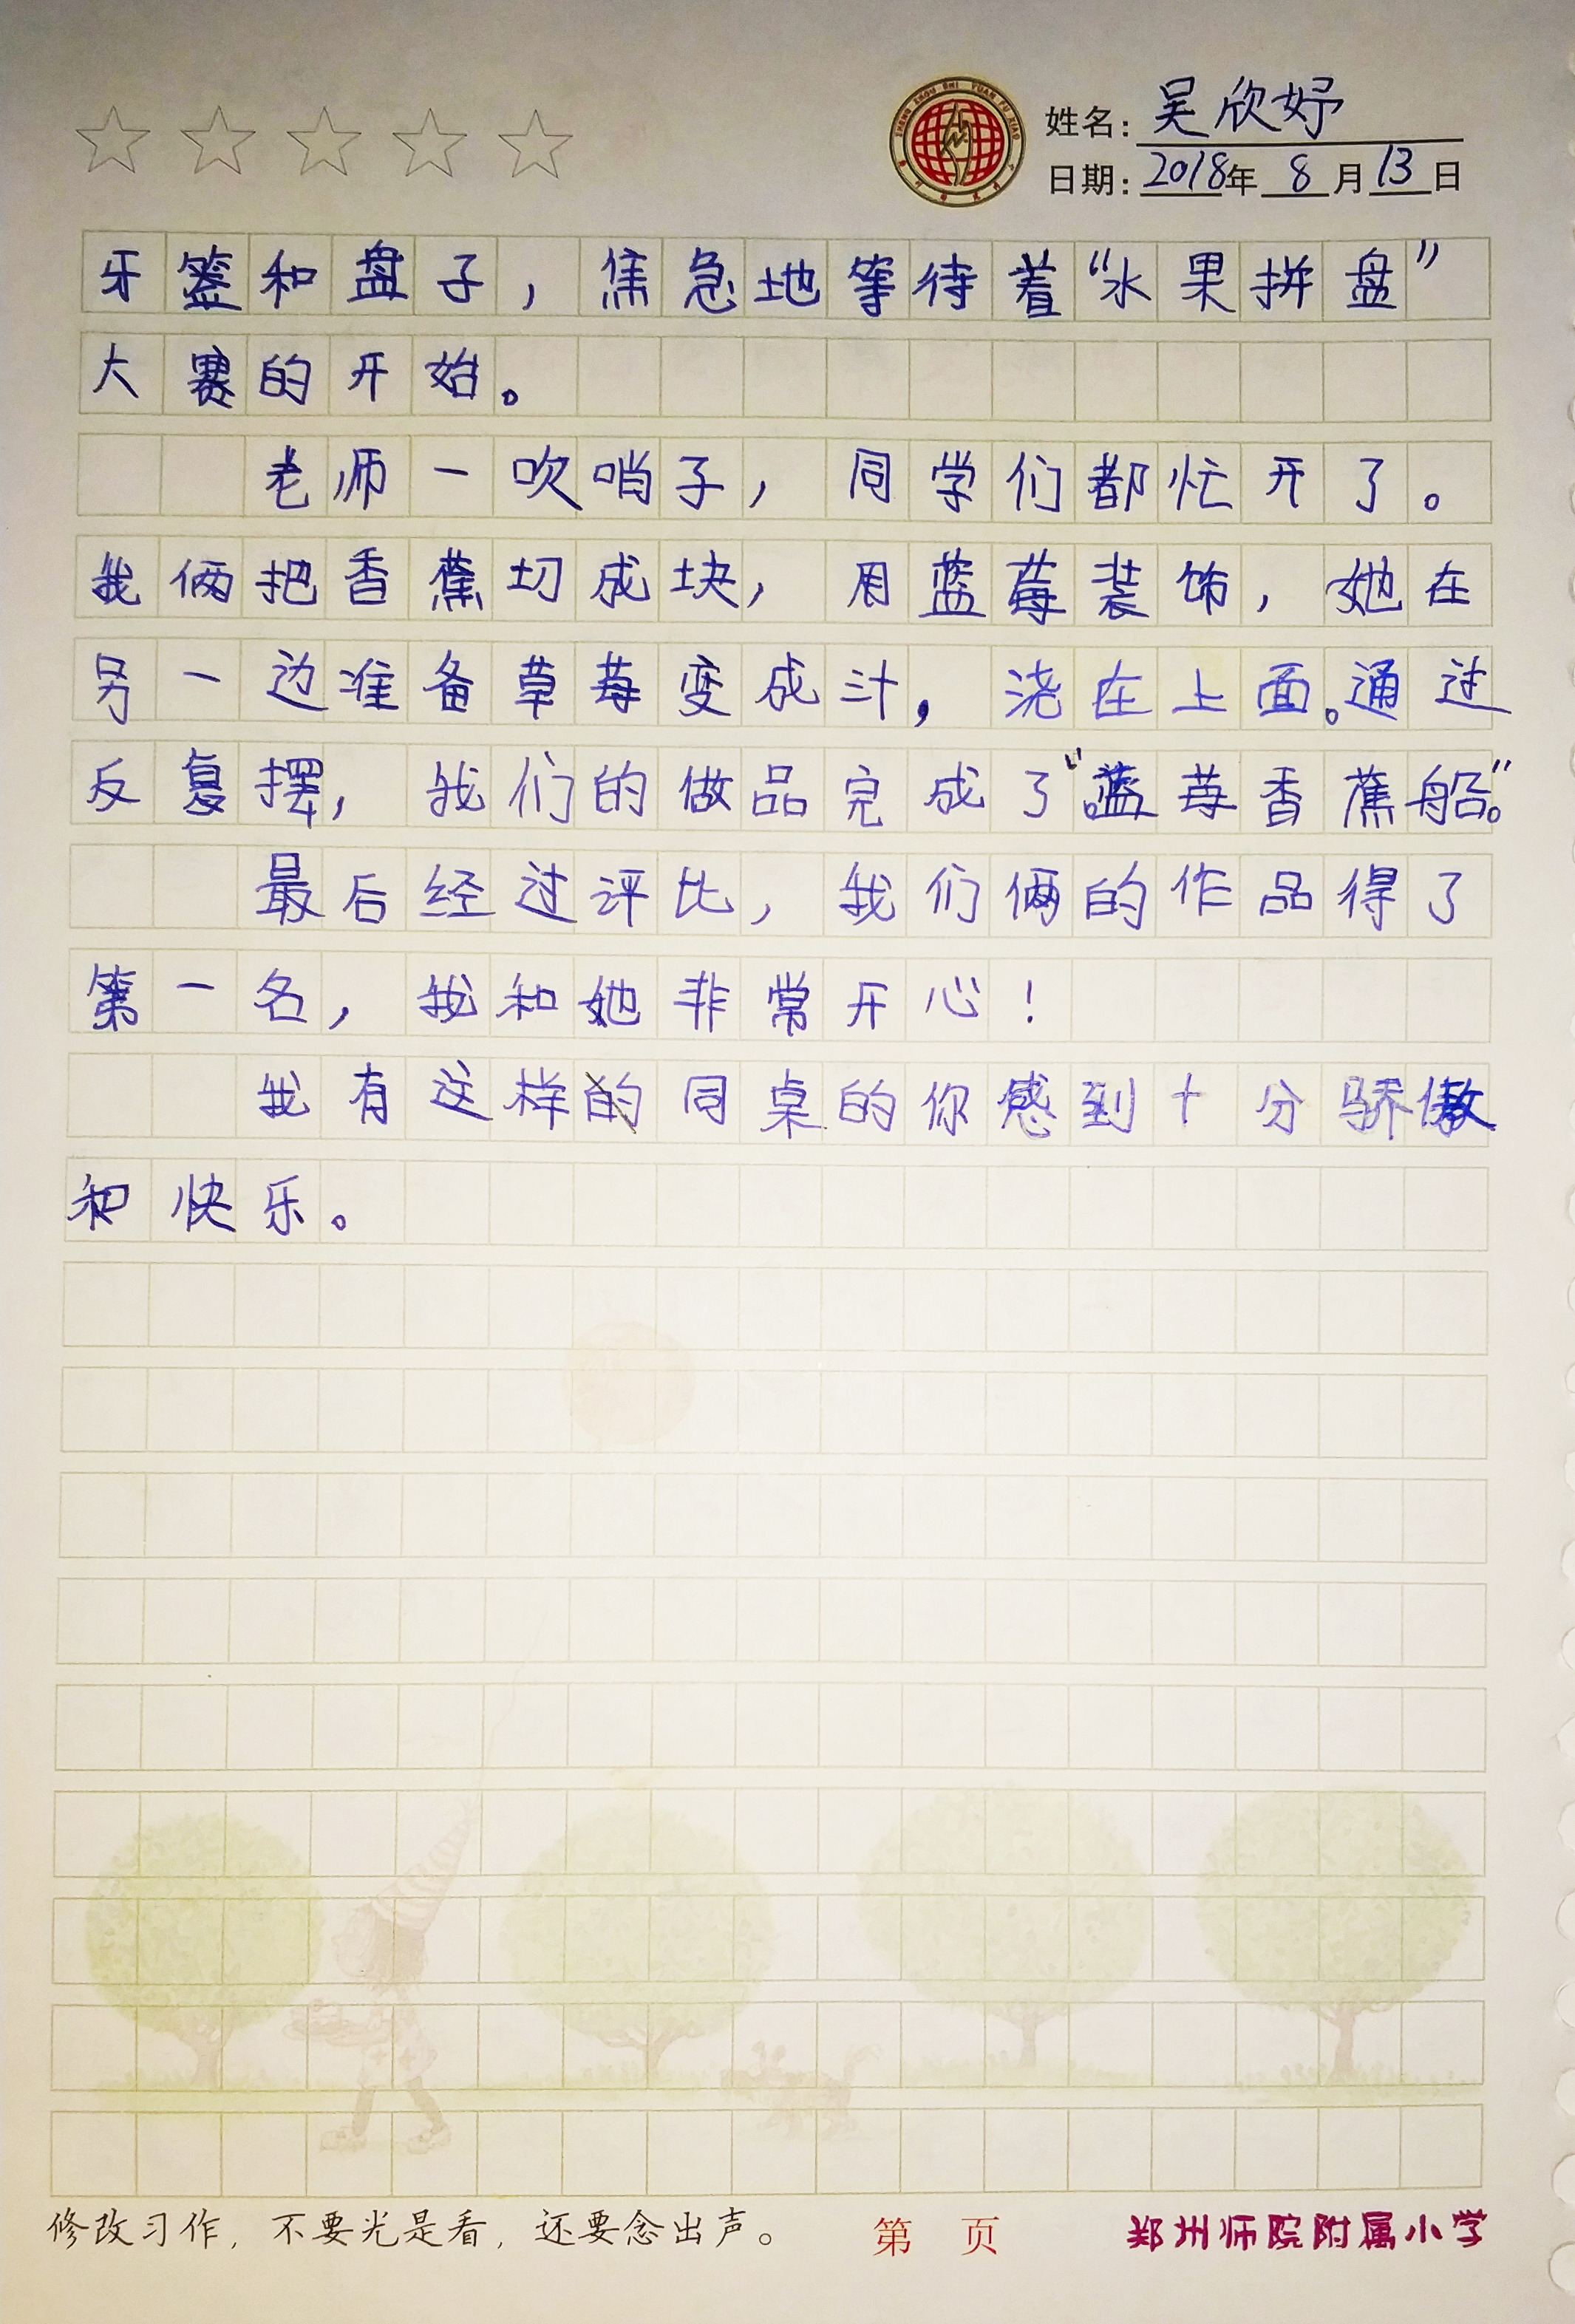 姓名：吴欣妤
日期：2018年8月13日
牙签和盘子，焦急地等待着“水果拼盘”
大赛的开始。
老师一吹哨子，同学们都忙开了。
我俩把香蕉切成块，用蓝莓装饰，她在
另一边准备草莓变成汁，浇在上面。通过
反复摆，我们的做品完成了“蓝莓香蕉船”。
最后经过评比，我们俩的作品得了
第一名，我和她非常开心！
我有这样的同桌的你感到十分骄傲
和快乐。
修改习作，不要光是看，还要念出声。
第 页
郑州师院附属小学